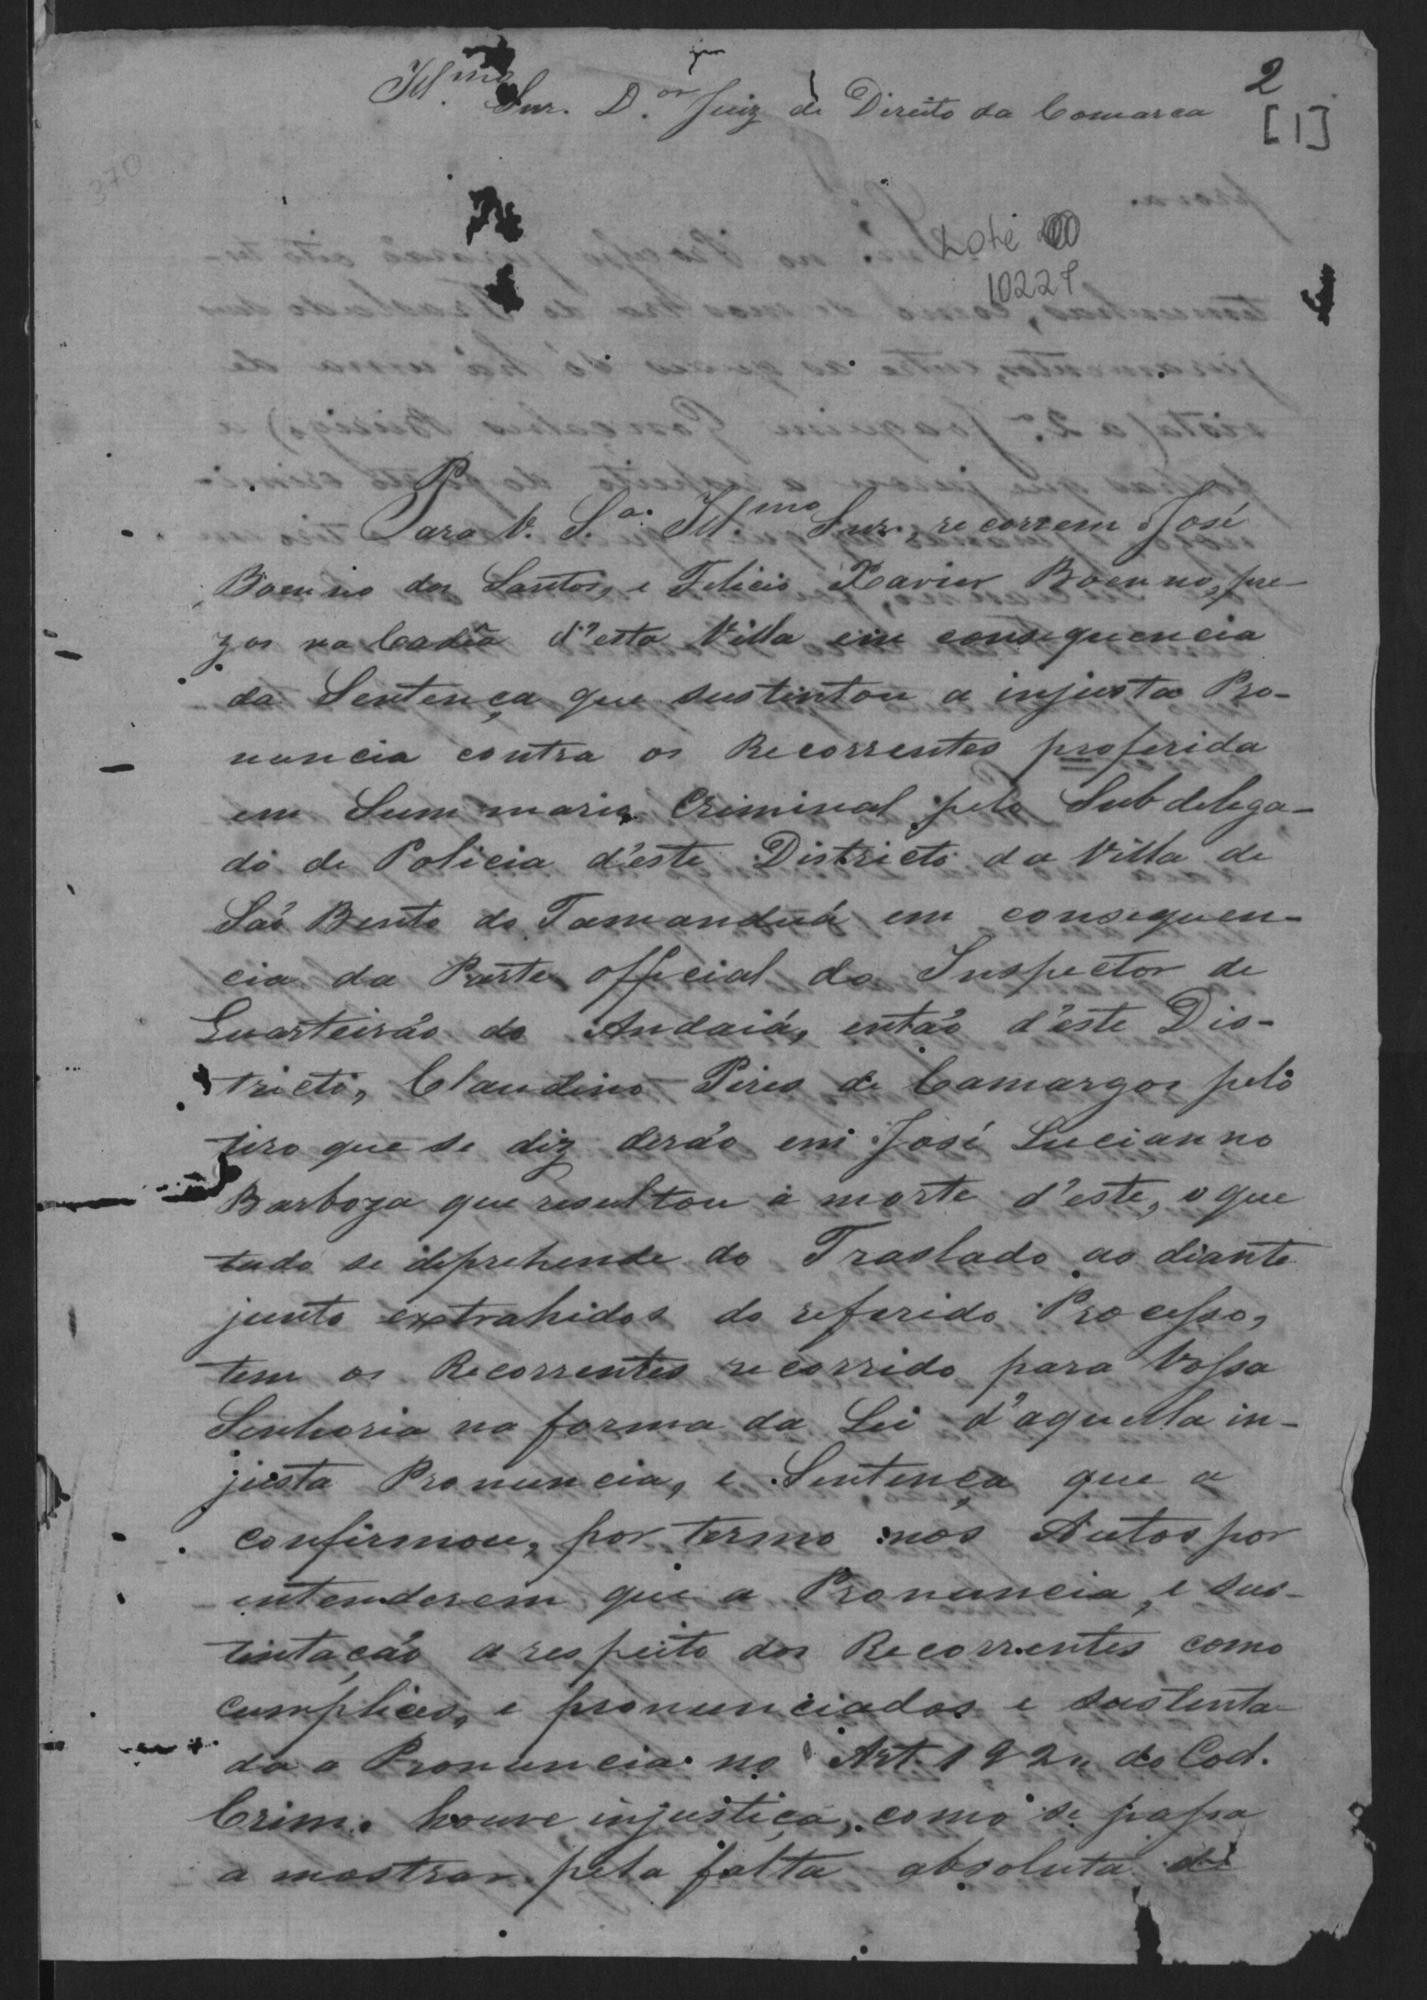 2
[1]
Ill.mo Snr. D.or Juiz de Direito da Comarca
370
Lote
10227
Para V. S.a Ill.mo Snr., recorrem José
Boenno dos Santos, e Felicio Xavier Boenno, pre-
zos na Cadêa d'esta Villa em consequencia
da Sentença que sustentou a injusta Pro-
nuncia contra os Recorrentes proferida
em Summario Criminal pelo Subdelega-
do de Policia d'este Districto da Villa de
São Bento do Tamanduá em consequen-
cia da Parte official do Inspector de
Quarteirão do Andaiá, então d'este Dis-
tricto, Claudino Pires de Camargos pelo
tiro que se diz derão em José Lucianno
Barboza que resultou a morte d'este, o que
tudo se deprehende do Traslado ao diante
junto extrahidos do referido Processo,
tem os Recorrentes recorrido para Vossa
Senhoria na forma da Lei d'aquella in-
justa Pronuncia, e Sentença que a
confirmou, por termo nos Autos por
entenderem que a Pronuncia, e sus-
tentação a respeito dos Recorrentes como
cumplices, e pronunciados e sustenta-
da a Pronuncia no Art. 192 do Cod.
Crim. houve injustiça, como se passa
a mostrar pela falta absoluta de